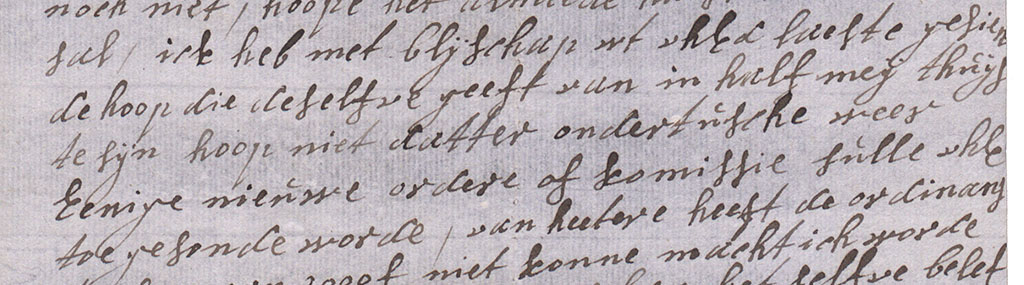 noch niet, hoope het
sal, ick heb met blijschap wt uhEd laeste gesien
de hoop die deselfve geeft van in half meij thuijs
te sijn hoop niet datter ondertusche weer
Eenige nieuwe ordere of komissie sulle uhE
toe gesonde worde, van heetere heeft de ordinans
niet konne macht, ick worde
het selfve belef